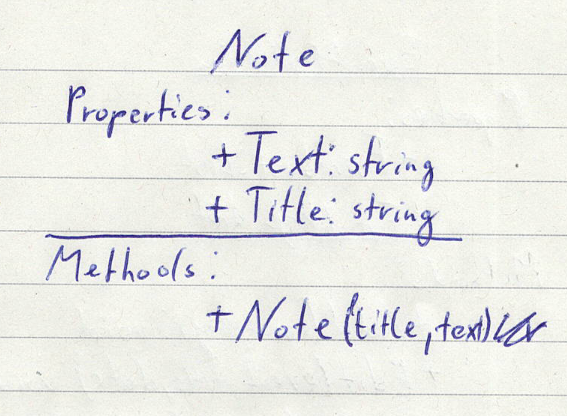 Note
Properties:
+ Text: string
+ Title: string
Methods:
+ Note(title, text)